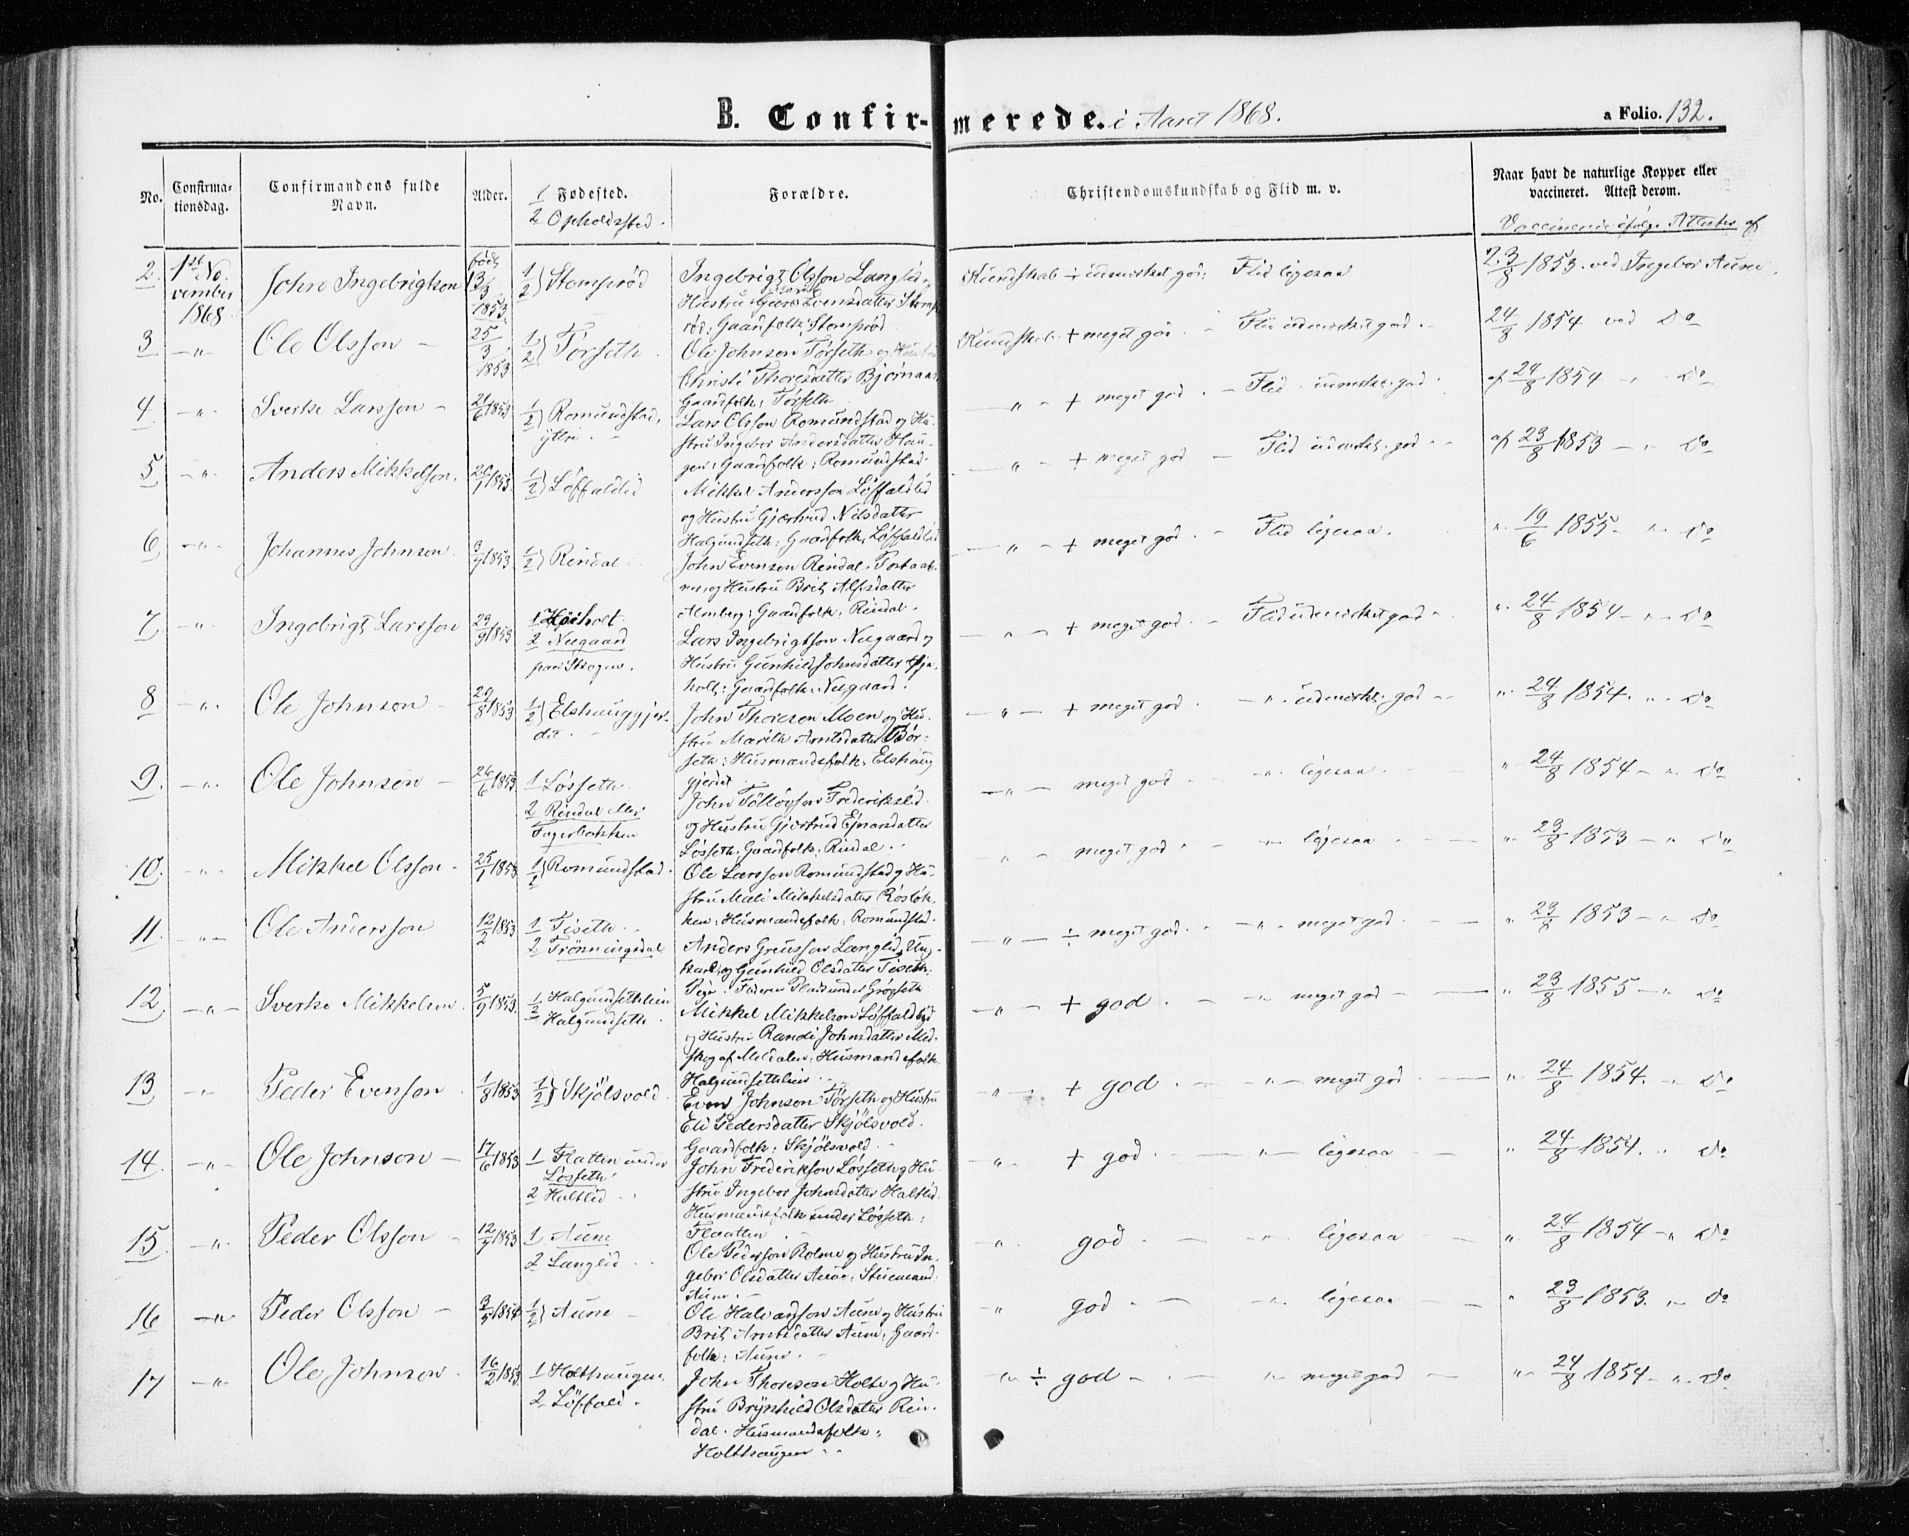 B. Confirmerede. i Aaret 1868.
a Folio. 132.
No.
Confirmationsdag.
Confirmandens fulde Navn.
Alder.
1 Fødested.
2 Opholdssted.
Forældre.
Christendomskundskab og Flid m. v.
Naar havt de naturlige Kopper eller vaccineret. Attest derom.
Vaccinerede ifølge Attester af
2. 1ste November 1868 John Ingebrigtson født 13/3 1853. 1/2} Stomprød
Ingebrigt Olsson Langlid
Hustru Guro Evensdatter Stomp
rød: Gaardfolk: Stomprød
Kundskab ÷ udmerket god: Flid ligesaa 23/8 1853. ved Ingebor Aune.
3 –"– Ole Olsson – 25/3 1853 1/2} Torseth
Ole Johnson Torseth og Hustru
Christi Thoresdatter Bjørnaas
Gaardfolk: Torseth
Kundskab + meget god. – Flid udmerket god. – 24/8 1854 ved Do
4 –"– Sverke Larsson – 21/6 1853 1/2} Romundstad, yttre. –
Lars Olsson Romundstad og Hu-
stru Ingebor Andersdatter Hau-
gen: Gaardfolk: Romundstad
–"– + meget god. – Flid udmerket god. af 24/8 1854 –"– Do
5 –"– Anders Mikkelson. 20/1 1853. 1/2} Løffaldlid
Mikkel Andersson Løffaldlid
og Hustru Gjertrud Nilsdatter
Halgundseth: Gaardfolk: Løffaldlid
–"– + meget god – Flid udmerket god – af 23/8 1853 –"– Do
6 –"– Johannes Johnson. 9/9 1853 1/2} Rindal
John Evenson Rindal.
og Hustru Brit Alfsdatter
Almberg: Gaardfolk: Rindal.
–"– + meget god. – Flid ligesaa. " 19/6 1855 –"– Do
7 –"– Ingebrigt Larsson 29/9 1853 1 Høiholt
2 Nergaard
paa Skogen.
Lars Ingebrigtson Nergaard og
Hustru Gunhild Johnsdatter
holt: Gaardfolk: Nergaard.
–"– + meget god. – Flid udmerket god – " 24/8 1854 –"– Do
8 –"– Ole Johnson – 20/8 1853 1/2} Elshauggjer-
det. –
John Thoreson Moen og Hu-
stru Marith Arntsdatter Bør-
seth: Husmandsfolk. Elshaug
gjerdet
–"– + meget god. –"– udmerket god – " 24/8 1854. –"– Do
9. –"– Ole Johnson – 26/6 1853 1 Løsseth
2 Rindal eller
Fagerbakken
John Tølløfson Frederikslid.
og Hustru Gjertrud Ejnarsdatter
Løsseth. Gaardfolk. Rindal.
–"– meget god –"– ligesaa. – " 24/8 1854 –"– Do
10. –"– Mikkel Olsson. 25/1 1853 1/2} Romundstad.
Ole Larsson Romundstad og Hu-
stru Mali Mikkelsdatter
ken: Husmandsfolk: Romundstad.
–"– meget god. –"– ligesaa – " 23/8 1853 –"– Do
11. –"– Ole Andersson 12/2 1853 1 Tiseth.
2 Trønningsdal
Anders Larsson Langlid, Ung-
karl, og Gunhild Olsdatter Tiseth.
Pige.
–"– ÷ meget god. –"– meget god. – " 23/8 1853 –"– Do
12. –"– Sverke Mikkelsen 5/9 1853. 1 Halgundsethlien
2 Halgundseth.
Mikkel Mikkelson Løffaldlid
og Hustru Randi Johnsdatter
af Meldalen: Husmandsfolk
Halgundsethlien
–"– + god. –"– meget god – " 23/8 1855 –"– Do
13 –"– Peder Evenson. 1/8 1853 1/2} Skjølsvold.
Even Johnson Torseth og Hustru
Eli Pedersdatter Skjølsvold.
Gaardfolk: Skjølsvold.
–"– + god. –"– meget god – " 24/8 1854. –"– Do
14. –"– Ole Johnson – 17/6 1853 1 Flatten under
Løsseth
2 Haltlid
John Frederikson Løsseth og Hu-
stru Ingebor Johnsdatter Haltlid.
Husmandsfolk under Løsseth:
Flaatten
–"– + god. –"– ligesaa – " 24/8 1854. " Do
15. –"– Peder Olsson – 12/7 1853 1 Aune
2 Langlid.
Ole Pederson Rolme og Hustru In-
gebor Olsdatter Aune,
Aune. –
–"– god –"– ligesaa – " 24/8 1854 –"– Do
16 –"– Peder Olsson – 3/5 1854 1/2} Aune –
Ole Halvardson Aune og Hustru
Brit Arntsdatter Aune: Gaard-
folk: Aune. –
" god. –"– ligesaa – " 23/8 1853. –"– Do
17 –"– Ole Johnson – 16/2 1853. 1 Holthaugen.
2 Løffald.
John Thoreson Holte og Hu-
stru Brynhild Olsdatter Rin-
dal. Husmandsfolk:
Holthaugen –
–"– ÷ god –"– meget god – " 24/8 1854 –"– Do